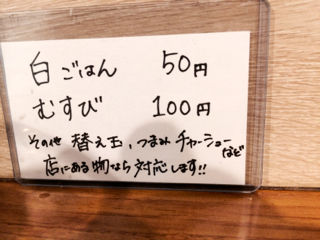 白ごはん 50円
むすび 100円
その他 替え玉、つまみ チャーシューなど
店にある物なら対応します!!